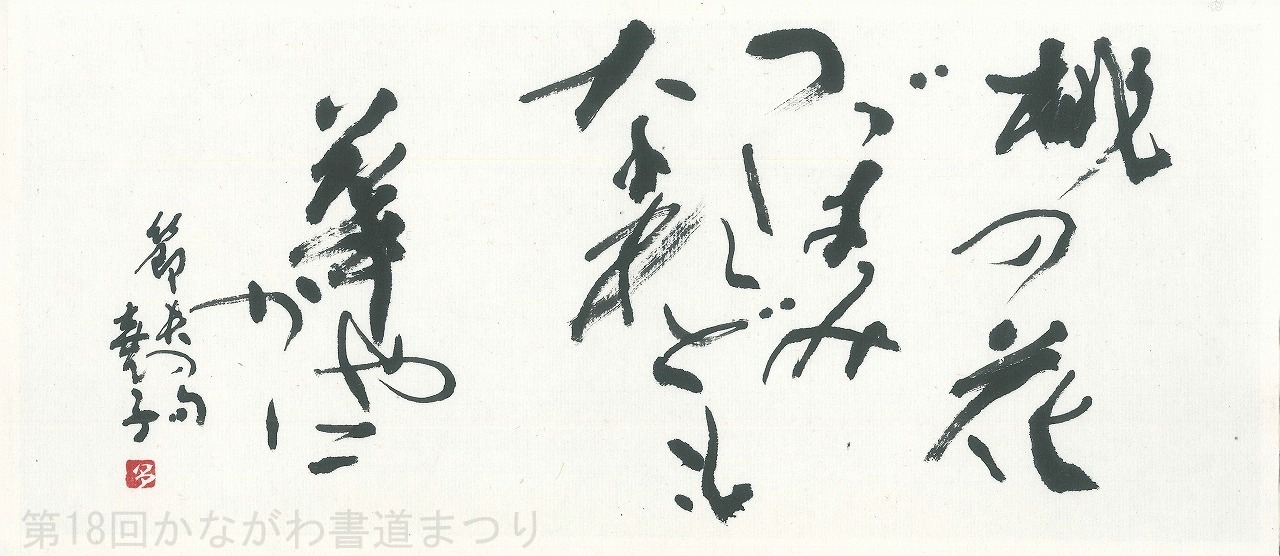 桃の花
つぼみ
なれども
華や
かに
節夫の句
第18回かながわ書道まつり